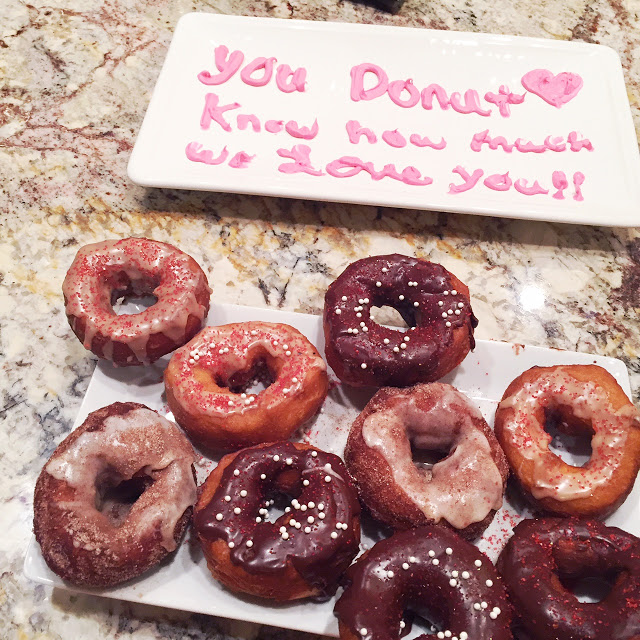 you Donut
Know how much
we Love you!!